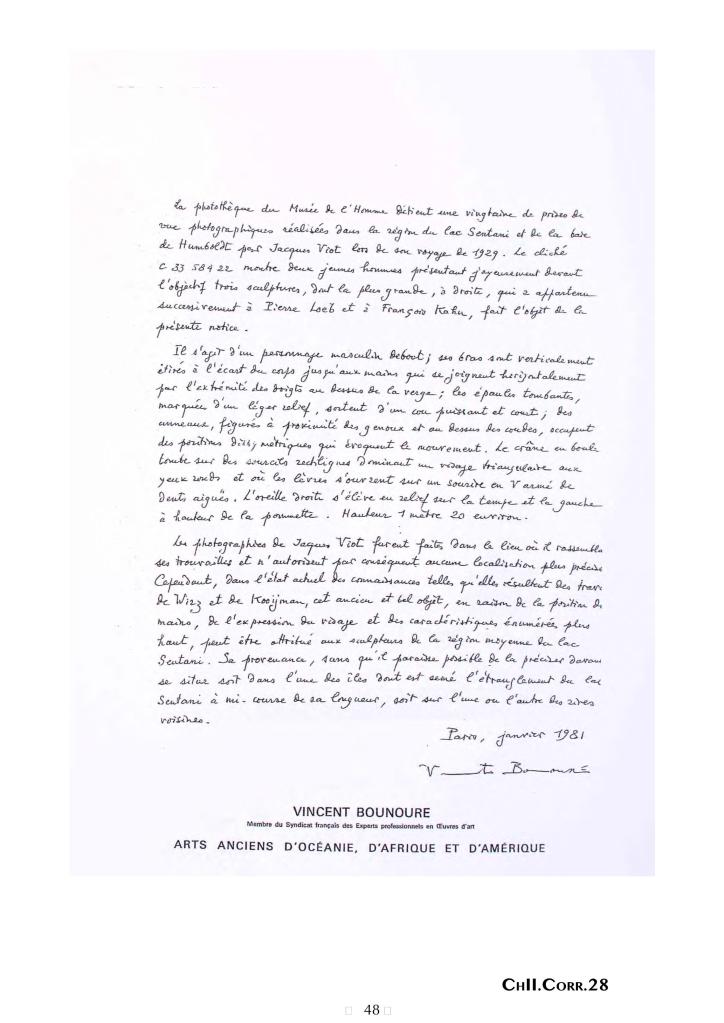 La photothèque du Musée de l'Homme détient une vingtaine de prises de
vue photographiques réalisées dans la région du lac Sentani et de la baie
de Humboldt par Jacques Viot lors de son voyage de 1929. Le cliché
C 33 584 22 montre deux jeunes hommes présentant joyeusement devant
l'objectif trois sculptures, dont la plus grande, à droite, qui a appartenu
successivement à Pierre Loeb et à François Kahn, fait l'objet de la
présente notice.
Il s'agit d'un personnage masculin debout ; ses bras sont verticalement
étirés à l'écart du corps jusqu'aux mains qui se joignent horizontalement
par l'extrémité des doigts au dessus de la verge ; les épaules tombantes,
marquées d'un léger relief, sortent d'un cou puissant et court ; des
anneaux, figurés à proximité des genoux et au dessus des coudes, occupent
des positions dissymétriques qui évoquent le mouvement. Le crâne en boule
tombe sur des sourcils rectilignes dominant un visage triangulaire aux
yeux ronds et où les lèvres s'ouvrent sur un sourire en V armé de
dents aiguës. L'oreille droite s'élève en relief sur la tempe et la gauche
à hauteur de la pommette. Hauteur 1 mètre 20 environ.
Les photographies de Jacques Viot furent faites dans le lieu où il rassembla
ses trouvailles et n'autorisent par conséquent aucune localisation plus précise
Cependant, dans l'état actuel des connaissances telles qu'elles résultent des trava
de Wirz et de Kooijman, cet ancien et bel objet, en raison de la position de
mains, de l'expression du visage et des caractéristiques énumérées plus
haut, peut être attribué aux sculpteurs de la région moyenne du lac
Sentani. Sa provenance, sans qu'il paraisse possible de la préciser davan
se situe soit dans l'une des îles dont est semé l'étranglement du lac
Sentani à mi-course de sa longueur, soit sur l'une ou l'autre des rives
voisines.
Paris, janvier 1981
VINCENT BOUNOURE
Membre du Syndicat français des Experts professionnels en Œuvres d'art
ARTS ANCIENS D'OCÉANIE, D'AFRIQUE ET D'AMÉRIQUE
CHII.CORR.28
48